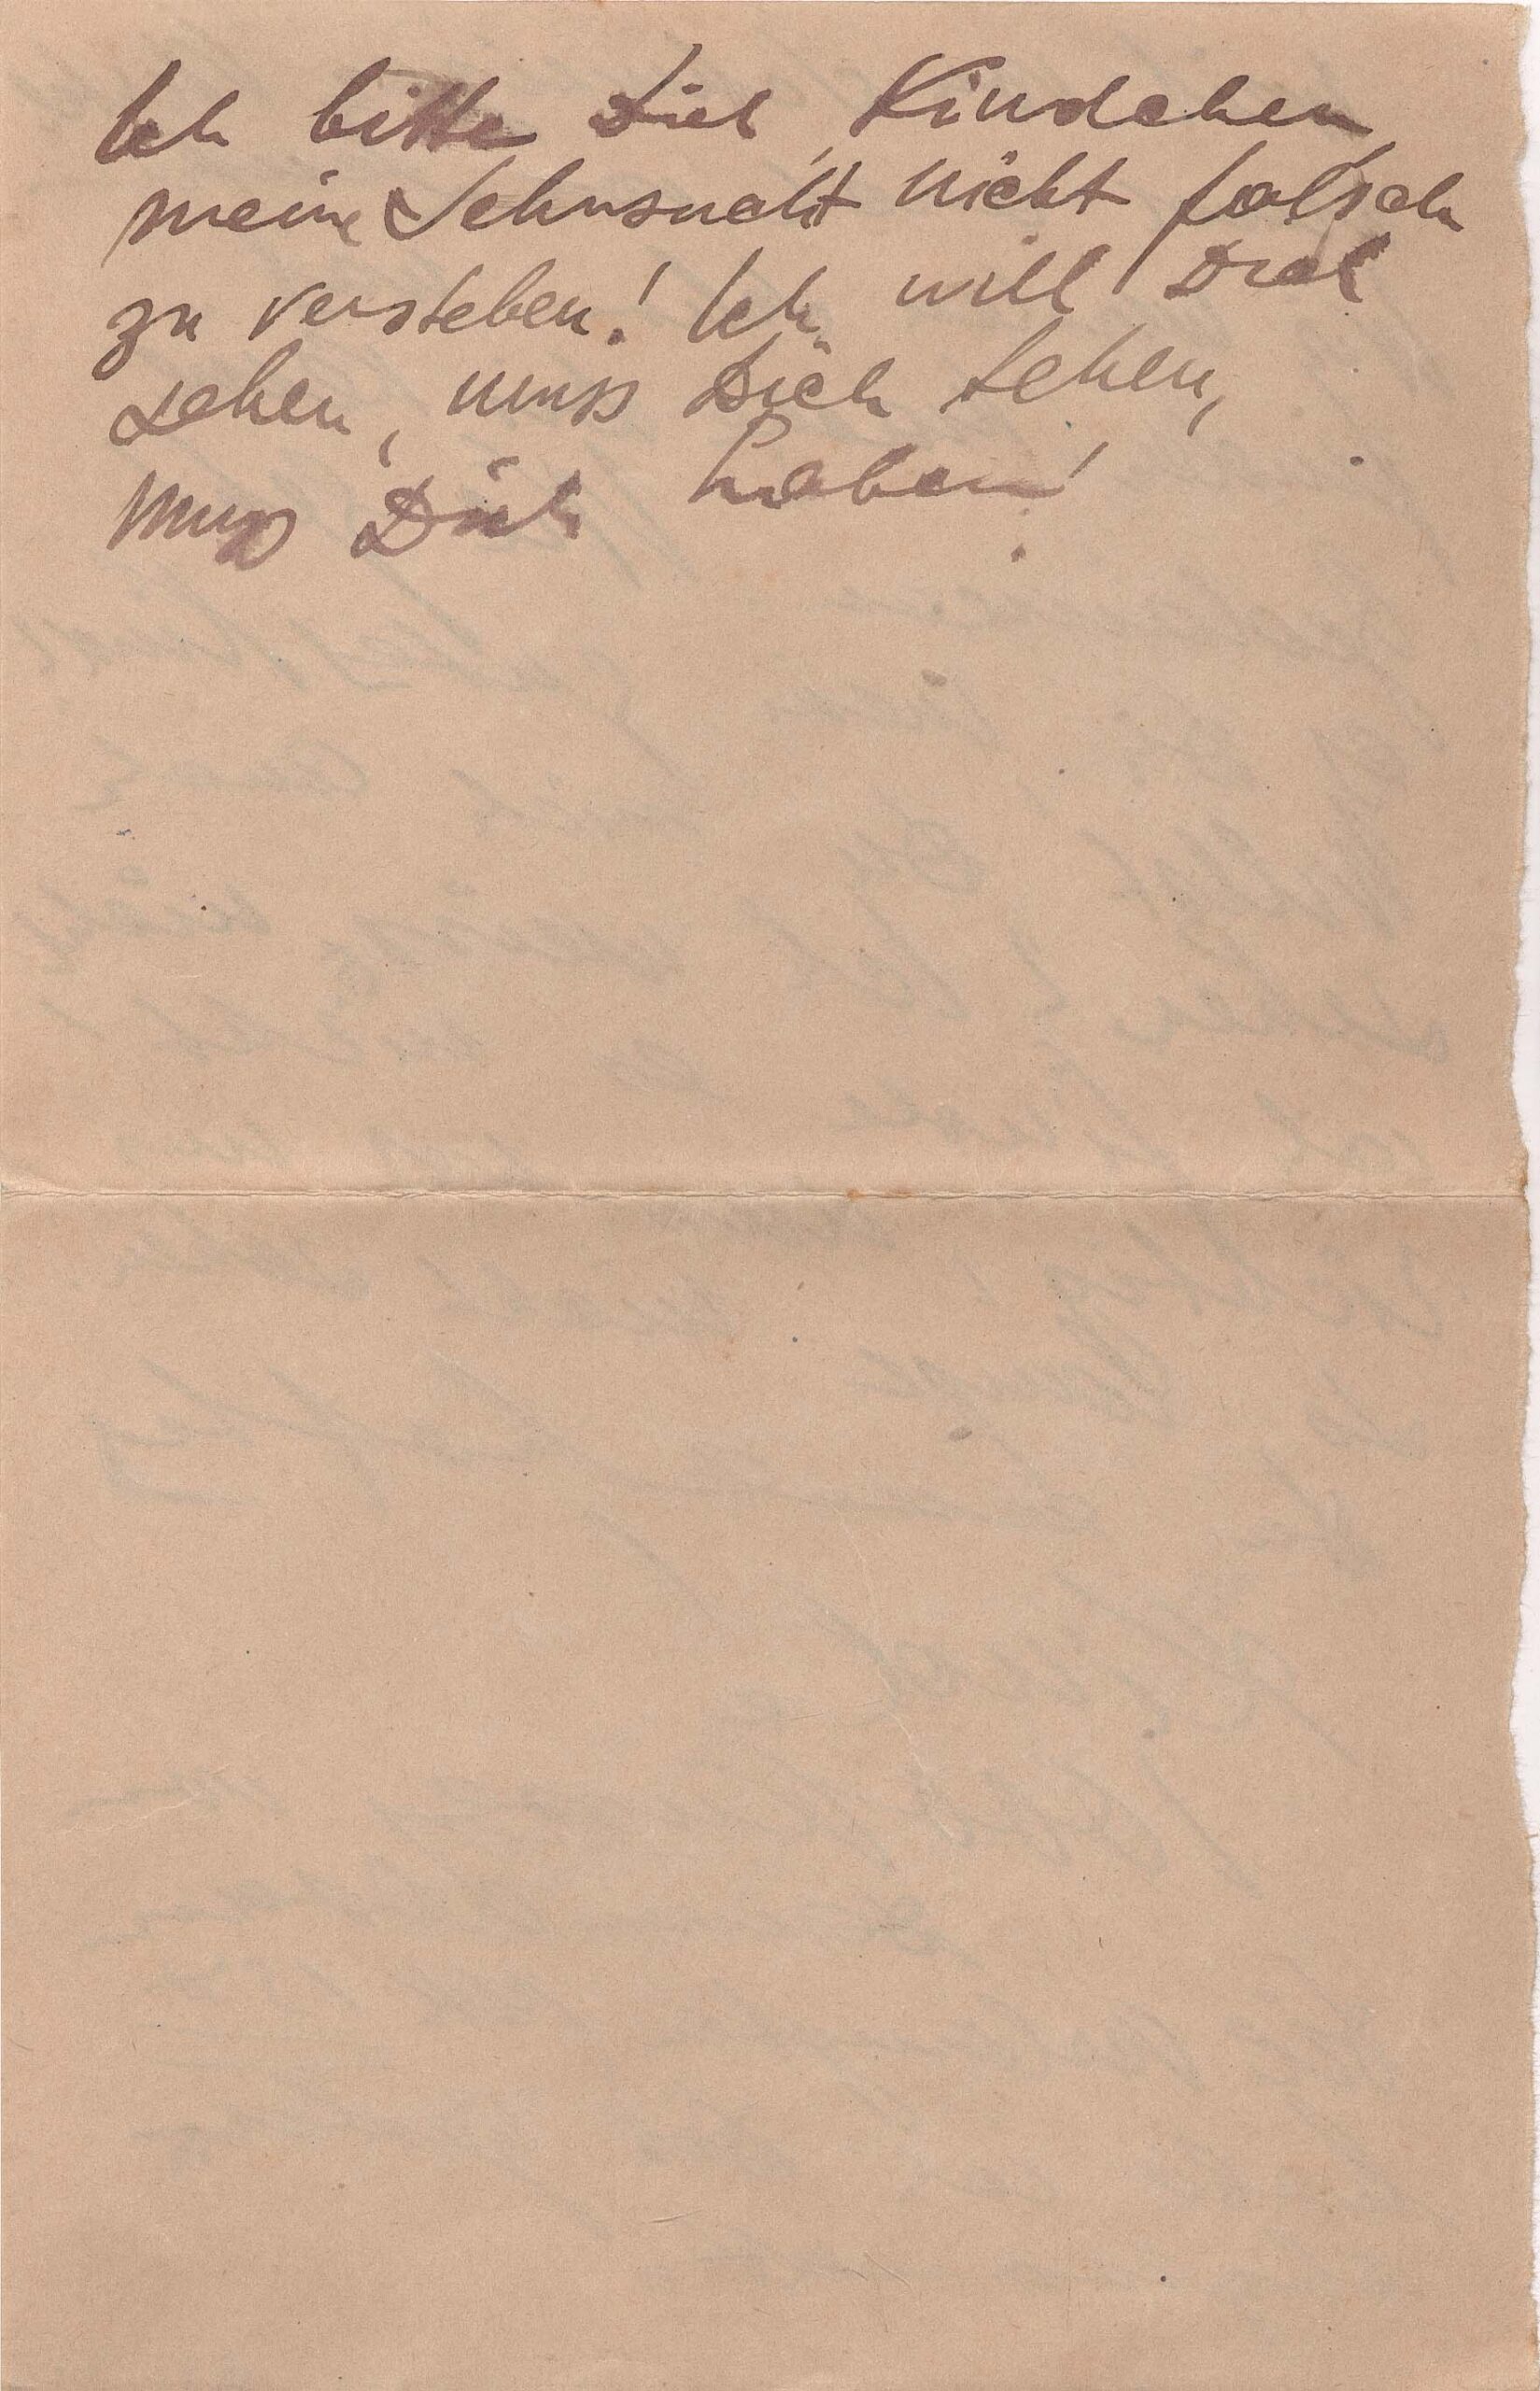 Ich bitte Dich, Kindchen,
meine Sehnsucht nicht falsch
zu verstehen! Ich will Dich
sehen, muss Dich sehen,
muss Dich haben!